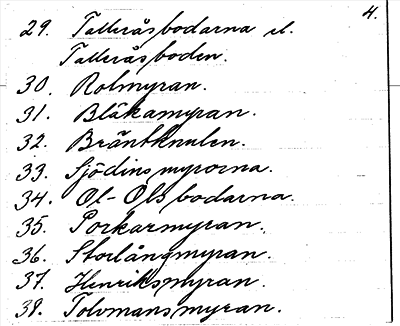 4.
29. Tallråsbodarna el.
Tallråsboden.
30. Rolmyran.
31. Bläkamyran.
32. Bräntknulen.
33. Sjödinsmyrorna.
34. Ol-Olsbodarna.
35. Porkarmyran.
36. Storlångmyran.
37. Henriksmyran.
38. Tolvmansmyran.